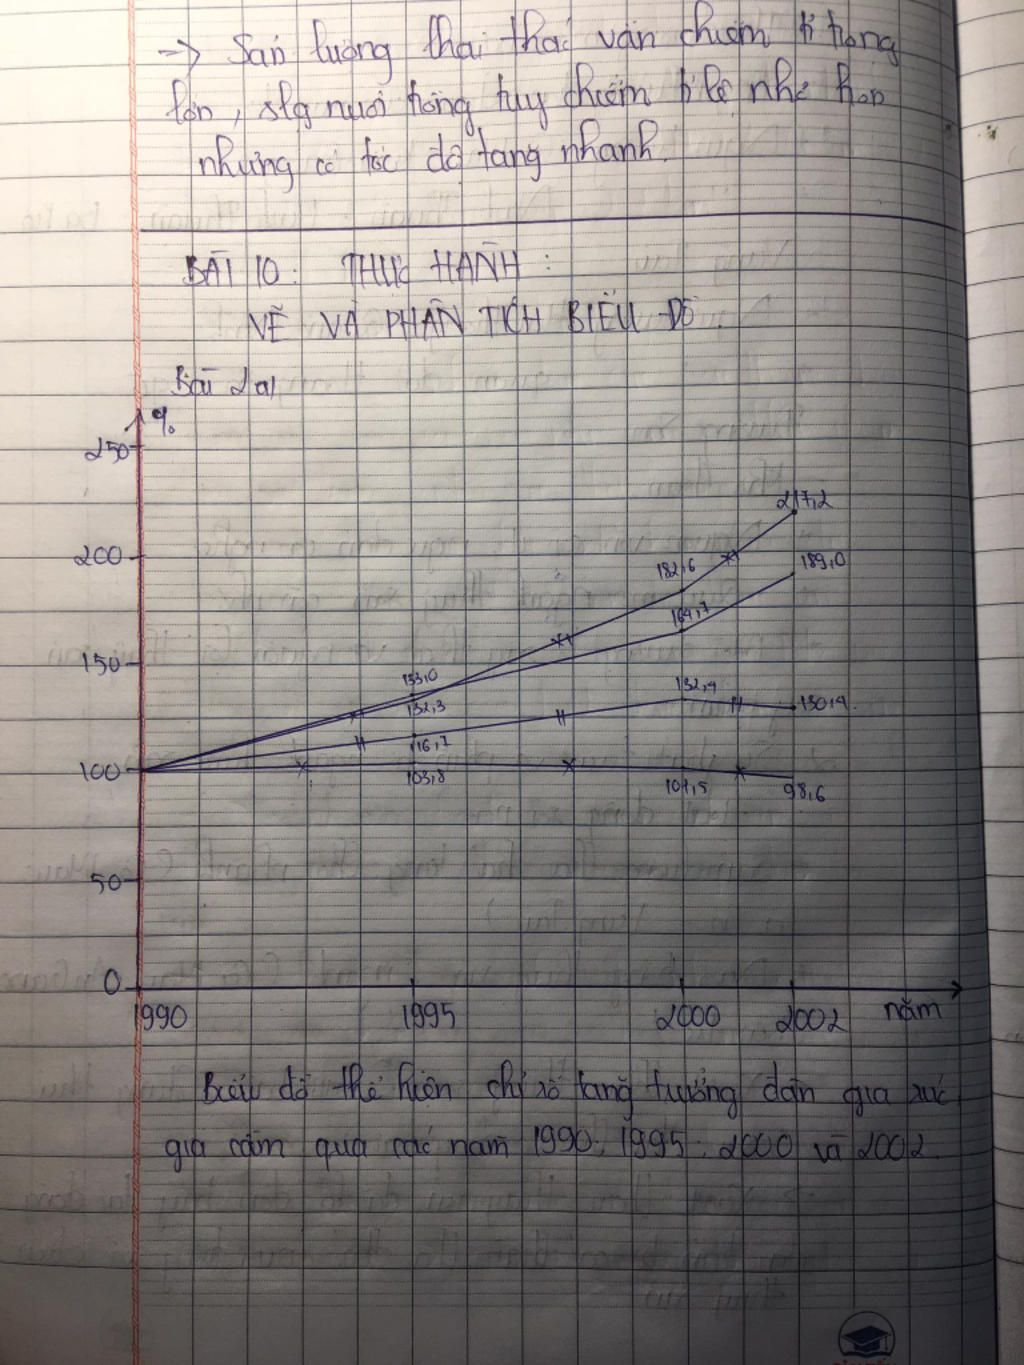 → Sản lượng khai thác vẫn chiếm tỉ trọng
lớn, slg nuôi trồng tuy chiếm tỉ lệ nhỏ hơn
nhưng có tốc độ tăng nhanh.
BÀI 10: THỰC HÀNH:
VẼ VÀ PHÂN TÍCH BIỂU ĐỒ.
Bài 2a)
%
250
217,2
200
189,0
182,6
164,7
150
133,0
132,4
132,3
130,4
116,7
100
103,8
101,5
98,6
50
0
1990 1995 2000 2002 năm
Biểu đồ thể hiện chỉ số tăng trưởng đàn gia súc
gia cầm qua các năm 1990, 1995, 2000 và 2002.